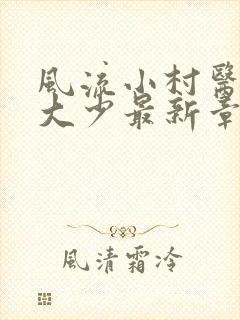 風流小村醫
大少最新章
風清霜冷